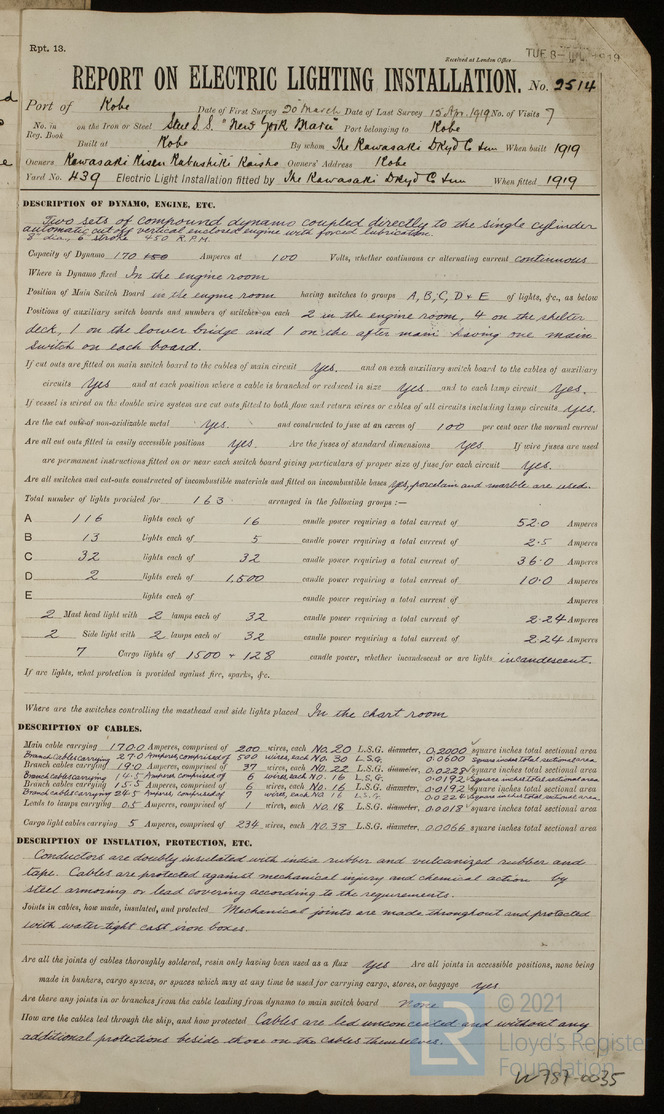 Rpt. 13.
Received at London Office
TUE 8- JUL 1919
REPORT ON ELECTRIC LIGHTING INSTALLATION. No. 2514
Port of Kobe Date of First Survey 20 March Date of Last Survey 15 Apr. 1919 No. of Visits 7
No. in Reg. Book on the Iron or Steel Steel S.S. "New York Maru" Port belonging to Kobe
Built at Kobe By whom The Kawasaki Dkyd Co When built 1919
Owners Kawasaki Kisen Kabushiki Kaisha Owners' Address Kobe
Yard No. 439 Electric Light Installation fitted by The Kawasaki Dkyd Co When fitted 1919
DESCRIPTION OF DYNAMO, ENGINE, ETC.
Two sets of compound dynamo coupled directly to the single cylinder
automatic cut off vertical enclosed engine with forced lubrication.
8" dia, 6" stroke 450 R.P.M.
Capacity of Dynamo 170 Amperes at 100 Volts, whether continuous or alternating current continuous
Where is Dynamo fixed In the engine room
Position of Main Switch Board in the engine room having switches to groups A, B, C, D & E of lights, &c., as below
Positions of auxiliary switch boards and numbers of switches on each 2 in the engine room, 4 on the shelter
deck, 1 on the lower bridge and 1 on the after main having one main
switch on each board.
If cut outs are fitted on main switch board to the cables of main circuit yes. and on each auxiliary switch board to the cables of auxiliary
circuits yes and at each position where a cable is branched or reduced in size yes. and to each lamp circuit yes.
If vessel is wired on the double wire system are cut outs fitted to both flow and return wires or cables of all circuits including lamp circuits yes.
Are the cut outs of non-oxidizable metal yes. and constructed to fuse at an excess of 100 per cent over the normal current
Are all cut outs fitted in easily accessible positions yes. Are the fuses of standard dimensions yes If wire fuses are used
are permanent instructions fitted on or near each switch board giving particulars of proper size of fuse for each circuit yes.
Are all switches and cut-outs constructed of incombustible materials and fitted on incombustible bases yes, porcelain and marble are used.
Total number of lights provided for 163 arranged in the following groups :—
A 116 lights each of 16 candle power requiring a total current of 52.0 Amperes
B 13 lights each of 5 candle power requiring a total current of 2.5 Amperes
C 32 lights each of 32 candle power requiring a total current of 36.0 Amperes
D 2 lights each of 1,500 candle power requiring a total current of 10.0 Amperes
E lights each of candle power requiring a total current of Amperes
2 Mast head light with 2 lamps each of 32 candle power requiring a total current of 2.24 Amperes
2 Side light with 2 lamps each of 32 candle power requiring a total current of 2.24 Amperes
7 Cargo lights of 1500 + 128 candle power, whether incandescent or arc lights incandescent.
If arc lights, what protection is provided against fire, sparks, &c.
Where are the switches controlling the masthead and side lights placed In the chart room
DESCRIPTION OF CABLES.
Main cable carrying 170.0 Amperes, comprised of 200 wires, each No. 20 L.S.G. diameter, 0.2000 square inches total sectional area
Branch cables carrying 27.0 Amperes, comprised of 500 wires, each No. 30 L.S.G. 0.0600 square inches total sectional area
Branch cables carrying 19.0 Amperes, comprised of 37 wires, each No. 22 L.S.G. diameter, 0.0228 square inches total sectional area
Branch cables carrying 14.5 Amperes, comprised of 6 wires, each No. 16 L.S.G. 0.0192 square inches total sectional area
Branch cables carrying 15.5 Amperes, comprised of 6 wires, each No. 16 L.S.G. diameter, 0.0192 square inches total sectional area
Branch cables carrying 24.5 Amperes, comprised of 7 wires, each No. 16 L.S.G. 0.0224 square inches total sectional area
Leads to lamps carrying 0.5 Amperes, comprised of 1 wires, each No. 18 L.S.G. diameter, 0.0018 square inches total sectional area
Cargo light cables carrying 5 Amperes, comprised of 234 wires, each No. 38 L.S.G. diameter, 0.0066 square inches total sectional area
DESCRIPTION OF INSULATION, PROTECTION, ETC.
Conductors are doubly insulated with india rubber and vulcanized rubber and
tape. Cables are protected against mechanical injury and chemical action by
steel armoring or lead covering according to the requirements.
Joints in cables, how made, insulated, and protected Mechanical joints are made throughout and protected
with water tight cast iron boxes.
Are all the joints of cables thoroughly soldered, resin only having been used as a flux yes Are all joints in accessible positions, none being
made in bunkers, cargo spaces, or spaces which may at any time be used for carrying cargo, stores, or baggage yes
Are there any joints in or branches from the cable leading from dynamo to main switch board None
How are the cables led through the ship, and how protected Cables are led unconcealed and without any
additional protections beside those on the cables themselves.
LR
© 2021
Lloyd's Register
Foundation
W787-0035